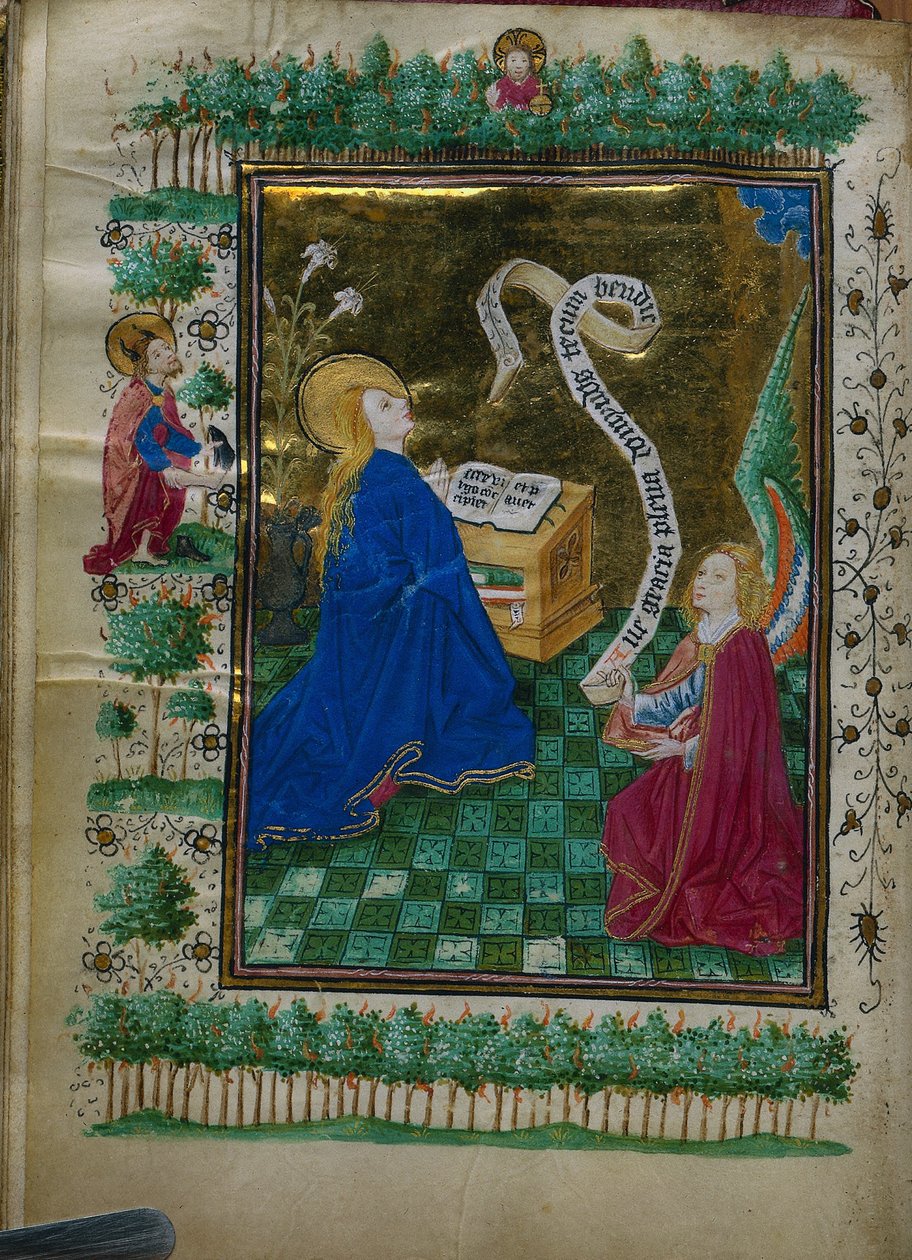 Aue gracia plena dominus tecum bendic
ecce vi
rgo con
cipiet
et p
ariet